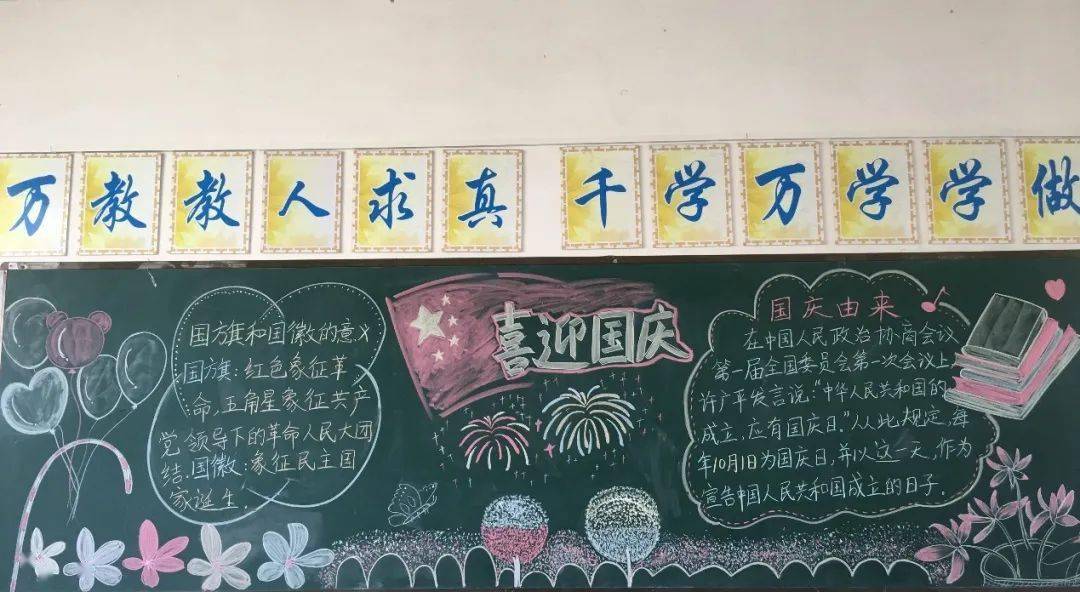 万教教人求真 千学万学学做
国方旗和国徽的意义
国旗：红色象征革
命，五角星象征共产
党领导下的革命人民大团
结.国徽：象征民主国
家诞生.
喜迎国庆
国庆由来
在中国人民政治协商会议
第一届全国委员会第一次会议上，
许广平发言说：“中华人民共和国的
成立，应有国庆日.”从此规定，每
年10月1日为国庆日，并以这一天，作为
宣告中国人民共和国成立的日子.